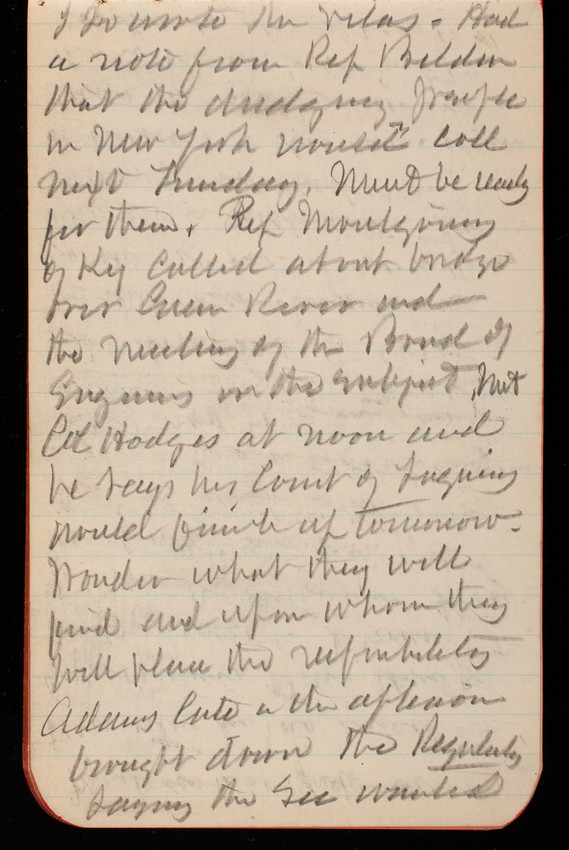 I wrote to Vilas - Had
a note from Rep Belden
that the dredging people
in New York would call
next Tuesday, Must be ready
for them. Rep Montgomery
of Ky called about bridge
over Green River and
the meeting of the Board of
Engineers on the subject, Met
Col Hodges at noon and
he says his Court of Inquiry
would finish up tomorrow.
Wonder what they will
find and upon whom they
will place the responsibility
Adams late in the afternoon
brought down the Regularly
saying the Sec wanted